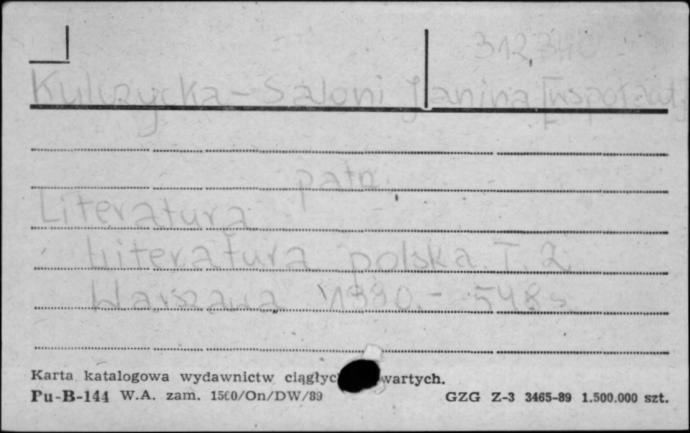 312340
Kulczycka-Saloni Janina [współaut.]
patrz
Literatura
Literatura polska T. 2
Warszawa 1990.- 548 s.
Karta katalogowa wydawnictw ciągłyc wartych.
Pu-B-144 W.A. zam. 1560/On/DW/89 GZG Z-3 3465-89 1.500.000 szt.